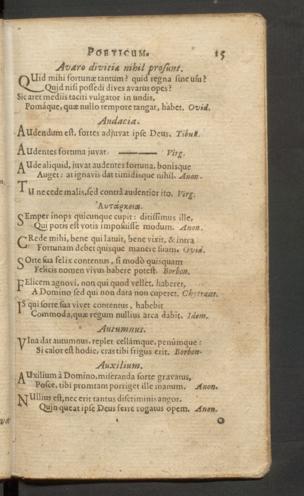 POETICUM. 15
Avaro divitiæ nihil prosunt.
QUid mihi fortunæ tantum? quid regna sine usu?
Quid nisi possedi dives avarus opes?
Sic aret mediis taciti vulgator in undis,
Pomáque, quæ nullo tempore tangat, habet. Ovid.
Audacia.
AUdendum est, fortes adjuvat ipse Deus. Tibull.
AUdentes fortuna juvat. ——— Virg.
AUde aliquid, juvat audentes fortuna, bonisque
Auget: at ignavis dat timidisque nihil. Anon.
TU ne cede malis, sed contrà audentior ito. Virg.
Αυτάρκεια.
SEmper inops quicunque cupit: ditissimus ille,
Qui potis est votis imposuisse modum. Anon.
CRede mihi, bene qui latuit, bene vixit, & intra
Fortunam debet quisque manere suam. Ovid.
SOrte sua felix contentus, si modò quisquam
Felicis nomen vivus habere potest. Borbon.
FElicem agnovi, non qui quod vellet, haberet,
A Domino sed qui non data non cuperet.
IS qui sorte sua vivet contentus, habebit
Commoda, quæ regum nullius arca dabit. Idem.
Autumnus.
VIna dat autumnus, replet cellámque, penúmque:
Si calor est hodie, cras tibi frigus erit. Borbon.
Auxilium.
AUxilium à Domino, miseranda sorte gravatus,
Posce, tibi promtam porriget ille manum. Anon.
NUllius est, nec erit tantus discriminis angor,
Quin queat ipse Deus ferre rogatus opem. Anon.